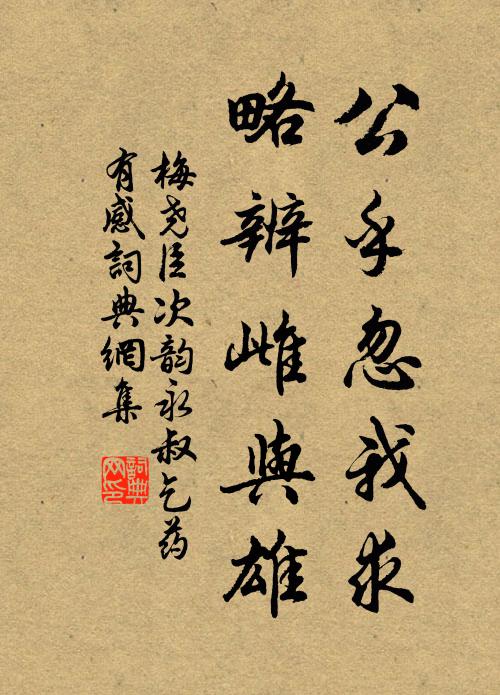 公乎忽我求
略辨雌與雄
梅尧臣次韵永叔乞药
有感詞典網集
詞典
网印